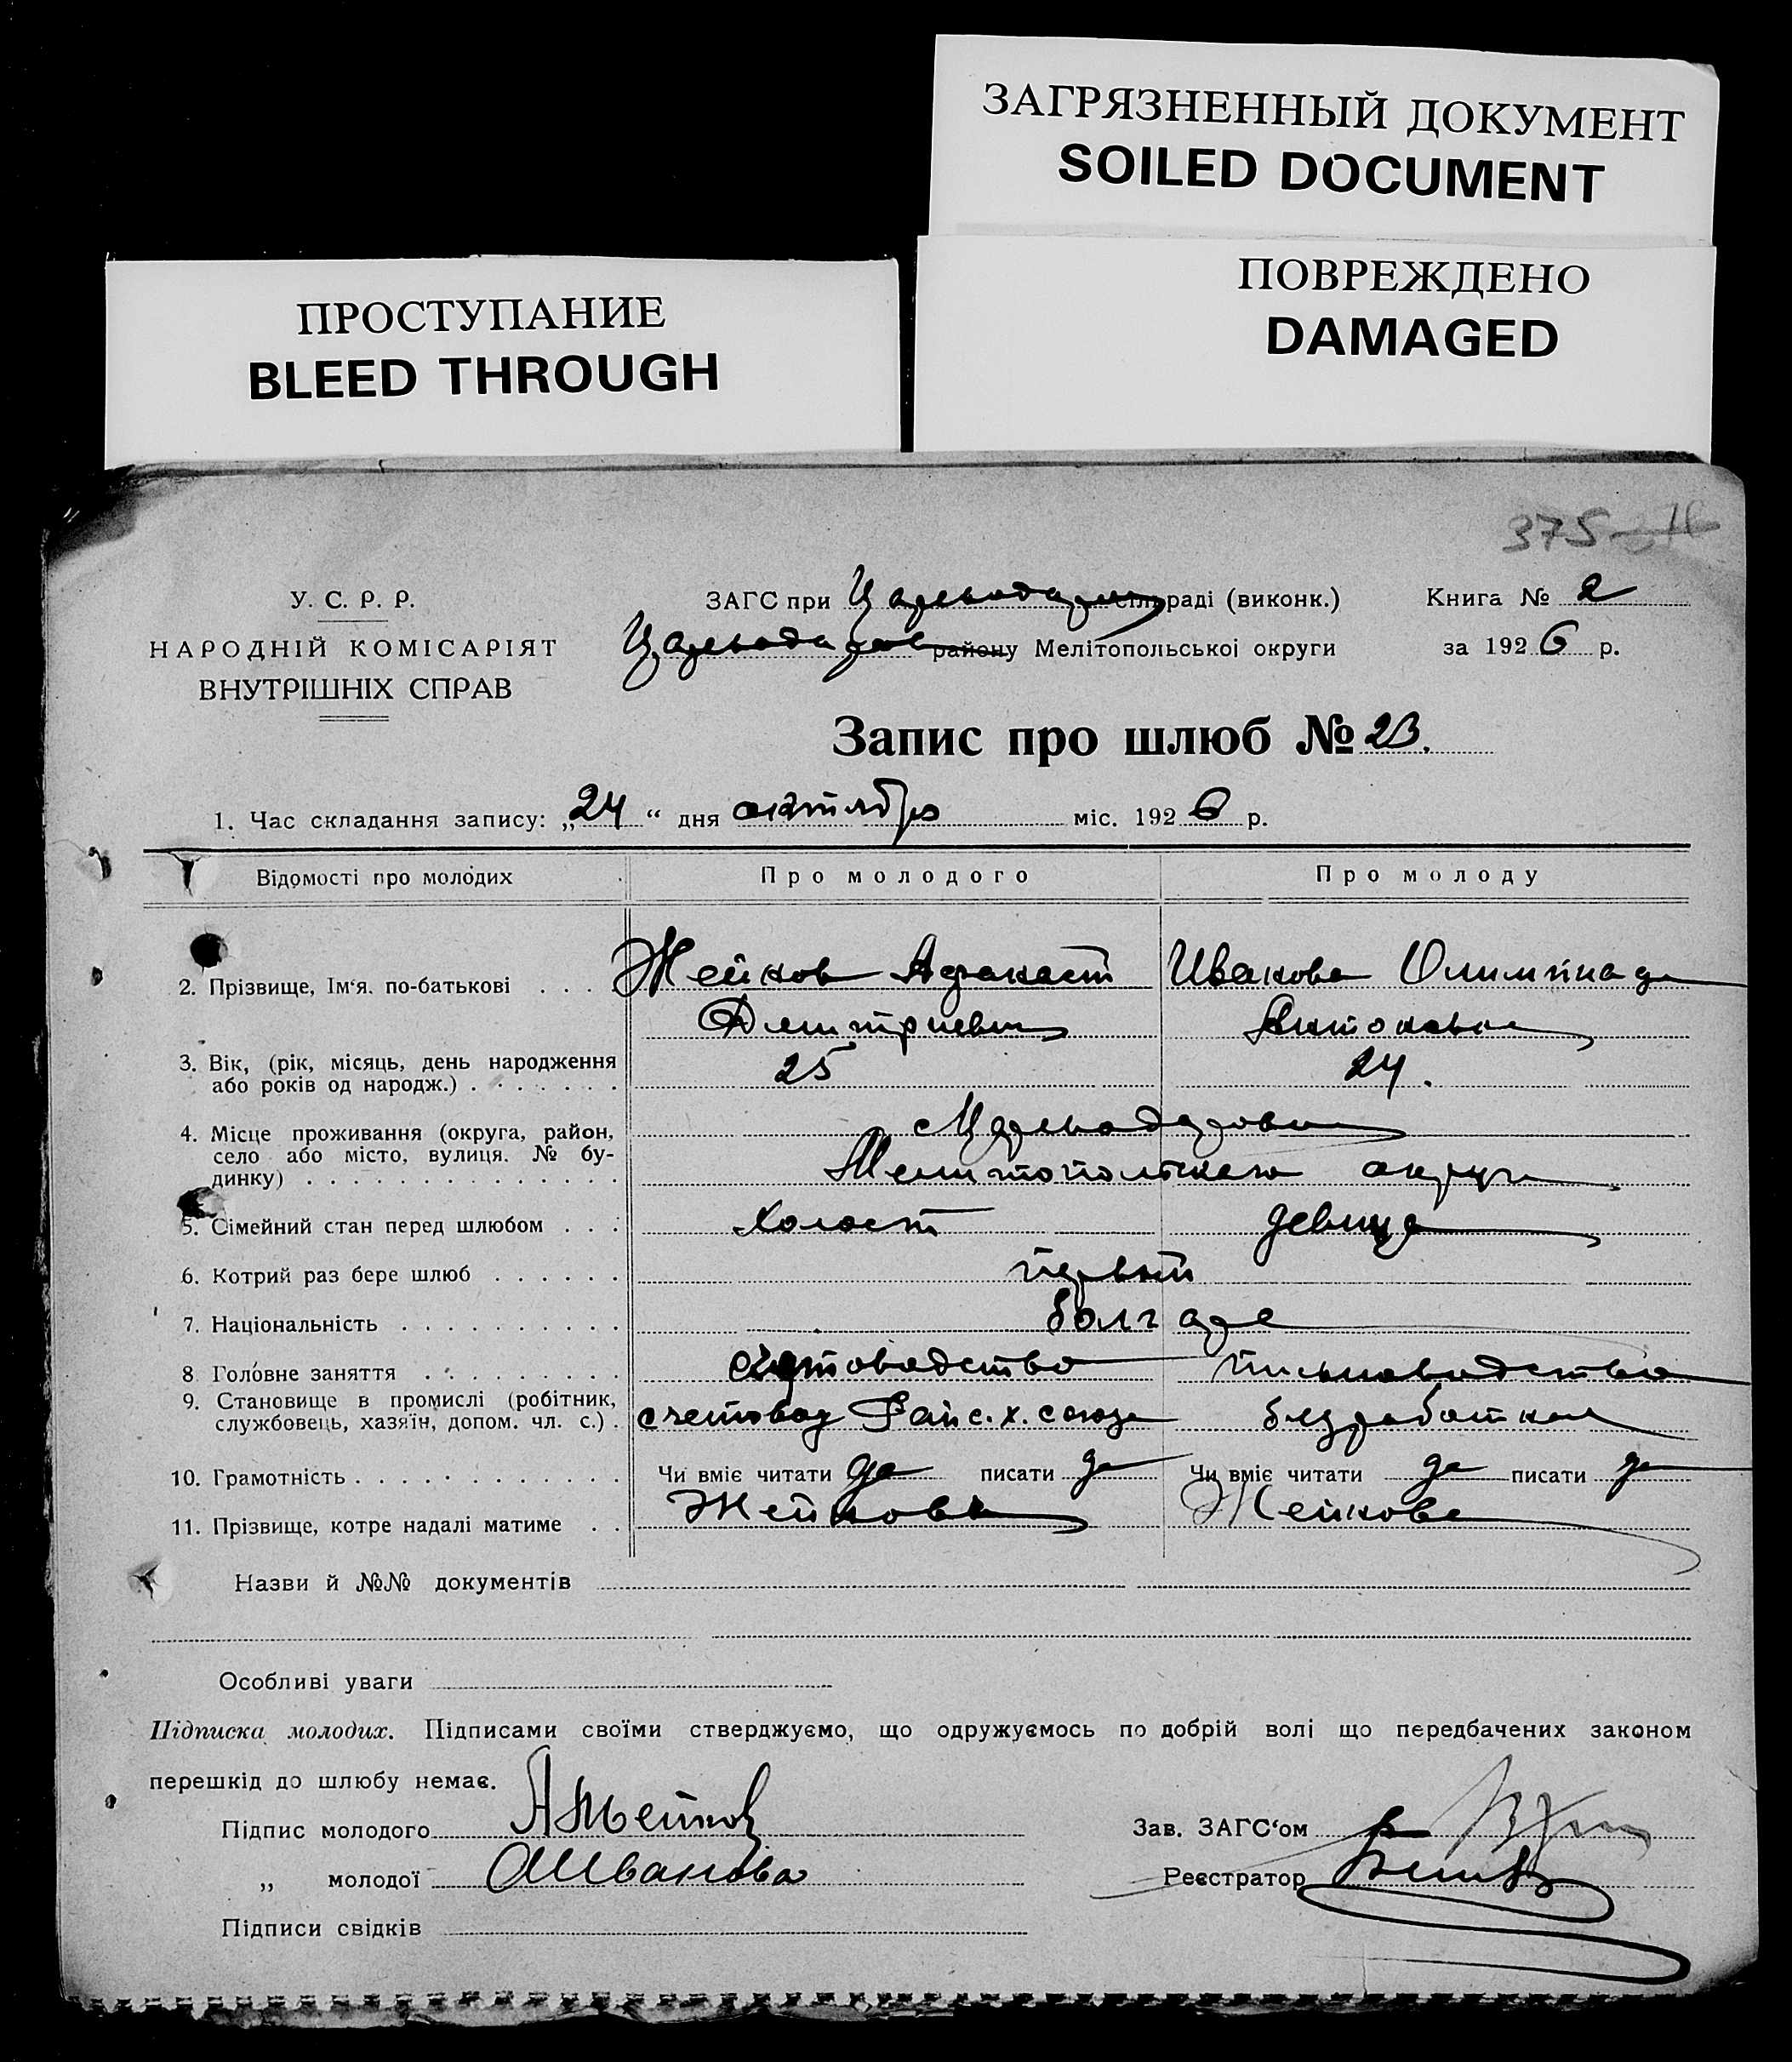 ЗАГРЯЗНЕННЫЙ ДОКУМЕНТ
SOILED DOCUMENT
ПОВРЕЖДЕНО
DAMAGED
ПРОСТУПАНИЕ
BLEED THROUGH
375
У. С. Р. Р.
НАРОДНІЙ КОМІСАРІЯТ
ВНУТРІШНІХ СПРАВ
ЗАГС при раді (виконк.)
району Мелітопольської округи
Книга № 2
за 1926 р.
Запис про шлюб № 23.
1. Час складання запису: „24“ дня октября міс. 1926 р.
Відомості про молодих Про молодого Про молоду
2. Прізвище, Ім‘я. по-батькові . . . . Жейков Иванова Олимпиада
Дмитриевич Антоновна
3. Вік, (рік, місяць, день народження
або років од народж.) . . . . . . . 25 24.
4. Місце проживання (округа, район,
село або місто, вулиця. № бу-
динку) . . . . . . . . . . . . . . Мелитопольского округа
5. Сімейний стан перед шлюбом . . . холост девица
6. Котрий раз бере шлюб . . . . . . первый
7. Національність . . . . . . . . . . болгаре
8 Головне заняття . . . . . . . . . счетоводство письмоводство
9. Становище в промислі (робітник,
службовець, хазяїн, допом. чл. с.) . счетовод Рай с.х. союза безработная
10. Грамотність . . . . . . . . . . . . Чи вміє читати да писати да Чи вміє читати да писати да
11. Прізвище, котре надалі матиме . . Жейков Жейкова
Назви й №№ документів
Особливі уваги
Підписка молодих. Підписами своїми стверджуємо, що одружуємось по добрій волі що передбачених законом
перешкід до шлюбу немає.
Підпис молодого АЖейков
„ молодої ОИванова
Підписи свідків
Зав. ЗАГС‘ом
Реєстратор